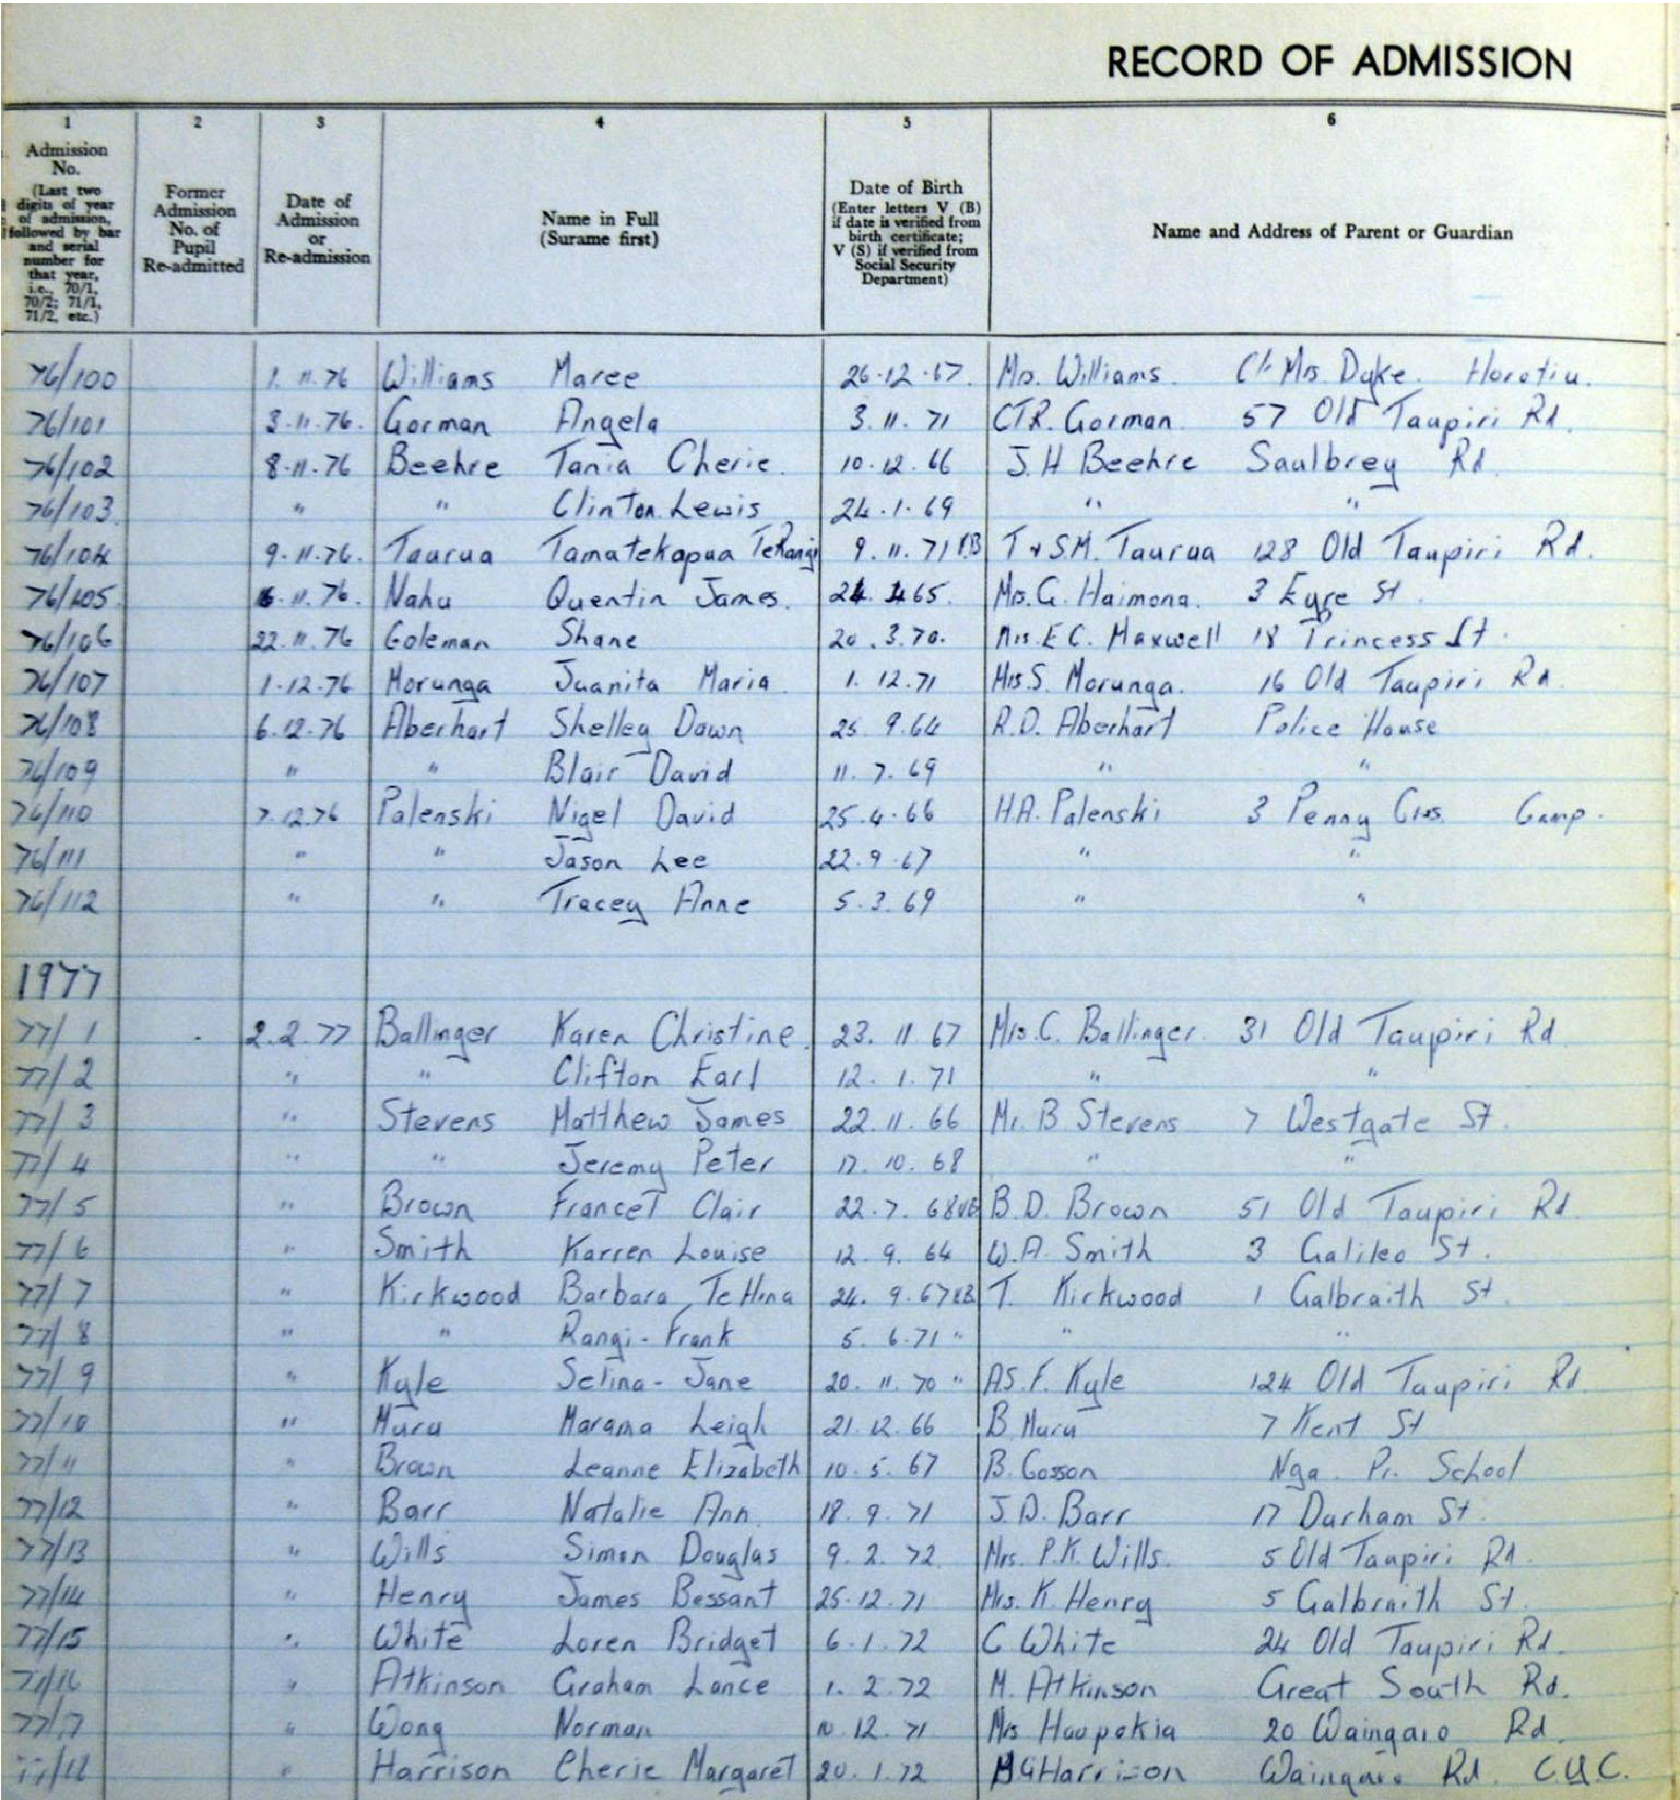 RECORD OF ADMISSION
1 2 3 4 5 6
Admission No. (Last two digits of year of admission, followed by bar and serial number for that year, i.e., 70/1, 70/2; 71/1, 71/2, etc.)
Former Admission No. of Pupil Re-admitted
Date of Admission or Re-admission
Name in Full (Surame first)
Date of Birth (Enter letters V (B) if date is verified from birth certificate; V (S) if verified from Social Security Department)
Name and Address of Parent or Guardian
76/100 1.11.76 Williams Maree 26.12.67. Mrs. Williams. C/- Mrs. Dyke. Horotiu.
76/101 3.11.76. Gorman Angela 3.11.71 Gorman 57 Old Taupiri Rd.
76/102 8.11.76 Beehre Tania Cherie. 10.12.66 J.H Beehre Saulbrey Rd
76/103. " " Clinton Lewis 24.1.69 " "
76/104 9.11.76. Taurua Tamatekapua TeRangi 9.11.71 VB T & S.M. Taurua 128 Old Taupiri Rd.
76/105. .11.76. Nahu Quentin James. 65. Mrs. G. Haimona. 3 Eyre St.
76/106 22.11.76 Coleman Shane 20.3.70. Mrs. E C. Maxwell 18 Princess St.
76/107 1.12.76 Morunga Juanita Maria. 1.12.71 Mrs. S. Morunga. 16 Old Taupiri Rd.
76/108 6.12.76 Aberhart Shelley Dawn 25.9.64 R.D. Aberhart Police House
76/109 " " Blair David 11.7.69 " "
76/110 7.12.76 Palenski Nigel David 25.4.66 H.A. Palenski 3 Penny Cres. Camp.
76/111 " " Jason Lee 22.9.67 " "
76/112 " " Tracey Anne 5.3.69 " "
1977
77/1 2.2.77 Ballinger Karen Christine. 23.11.67 Mrs. C. Ballinger. 31 Old Taupiri Rd
77/2 " " Clifton Earl 12.1.71 " "
77/3 " Stevens Matthew James 22.11.66 Mr. B Stevens 7 Westgate St.
77/4 " " Jeremy Peter 17.10.68 " "
77/5 " Brown Clair 22.7.68 VB B.D. Brown 51 Old Taupiri Rd
77/6 " Smith Karren Louise 12.9.64 W.A. Smith 3 Galileo St.
77/7 " Kirkwood Barbara TeHina 24.9.67 VB T. Kirkwood 1 Galbraith St.
77/8 " " Rangi-Frank 5.6.71 " " "
77/9 " Kyle Selina-Jane 20.11.70 " A.S.F. Kyle 124 Old Taupiri Rd.
77/10 " Muru Marama Leigh 21.12.66 B Muru 7 Kent St
77/11 " Brown Leanne Elizabeth 10.5.67 B. Cosson Nga. Pr. School
77/12 " Barr Natalie Ann. 18.9.71 J.D. Barr 17 Durham St.
77/13 " Wills Simon Douglas 9.2.72. Mrs. P.K. Wills. 5 Old Taupiri Rd.
77/14 " Henry James Bessant 25.12.71 Mrs. K. Henry 5 Galbraith St.
77/15 " White Loren Bridget 6.1.72 C White 24 Old Taupiri Rd.
77/16 " Atkinson Graham Lance 1.2.72 M. Atkinson Great South Rd.
77/17 " Wong Norman 10.12.71 Mrs Haupokia 20 Waingaro Rd.
77/18 " Harrison Cherie Margaret 20.1.72 Harrison Waingaro Rd.